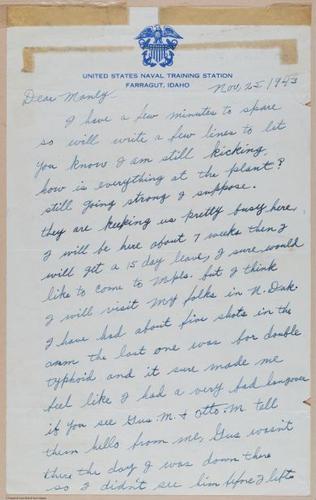 UNITED STATES NAVAL TRAINING STATION
FARRAGUT, IDAHO
Nov, 25, 1943
Dear Manly
I have a few minutes to spare
so will write a few lines to let
you know I am still kicking,
how is everything at the plant?
still going strong I suppose.
they are keeping us pretty busy here,
I will be here about 7 weeks then I
will get a 15 day leave, I sure would
like to come to Mpls. but I think
I will visit my folks in N. Dak.
I have had about five shots in the
arm the last one was for double
typhoid and it sure made me
feel like I had a very bad hangover
if you see Gus M. & Otto. M tell
them hello from me, Gus wasn't
there the day I was down there
so I didn't see him before I left